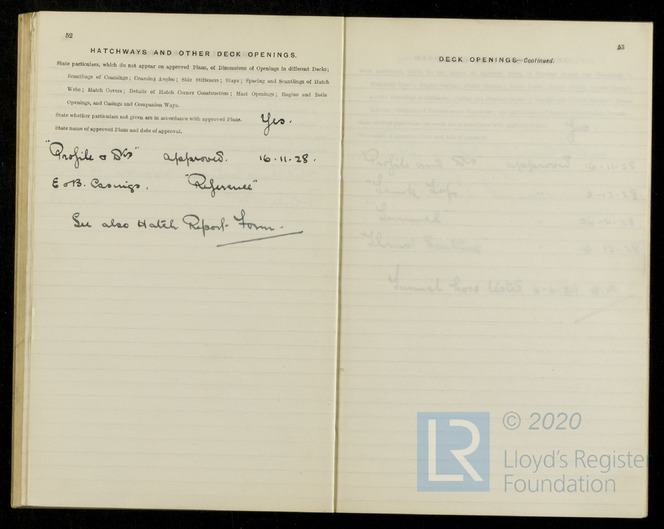 52
HATCHWAYS AND OTHER DECK OPENINGS.
State particulars, which do not appear on approved Plans, of Dimensions of Openings in different Decks;
Scantlings of Coamings; Coaming Angles; Side Stiffeners; Stays; Spacing and Scantlings of Hatch
Webs; Hatch Covers; Details of Hatch Corner Construction; Mast Openings; Engine and Boiler
Openings, and Casings and Companion Ways.
State whether particulars not given are in accordance with approved Plans. Yes.
State name of approved Plans and date of approval.
"Profile & Dks" approved. 16.11.28.
E & B. Casings. "Reference"
See also Hatch Report Form.
53
DECK OPENINGS—Continued.
LR
© 2020
Lloyd's Register
Foundation